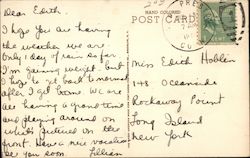 Dear Edith.
I hope you are having
the weather we are.
Only 1 day of rain so far.
I'm gaining weight but
I hope to get back to normal
after I get home. We are
are having a grand time
and playing around on
what's pictured on the
front. Have a nice vacation
See you soon. Lillian
HAND COLORED
POST CARD
Miss Edith
148 Oceanside
Rockaway Point
Long Island
New York